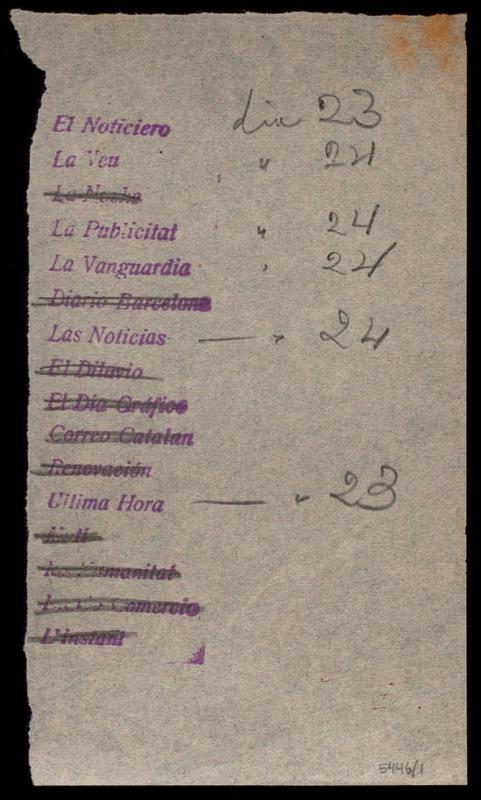 El Noticiero dia 23
La Veu " 24
La Noche
La Publicitat " 24
La Vanguardia " 24
Diario Barcelona
Las Noticias — " 24
El Diluvio
El Dia Gráfico
Correo Catalan
Renovación
Ultima Hora — " 23
La Humanitat
Comercio
L'instant
5446/1